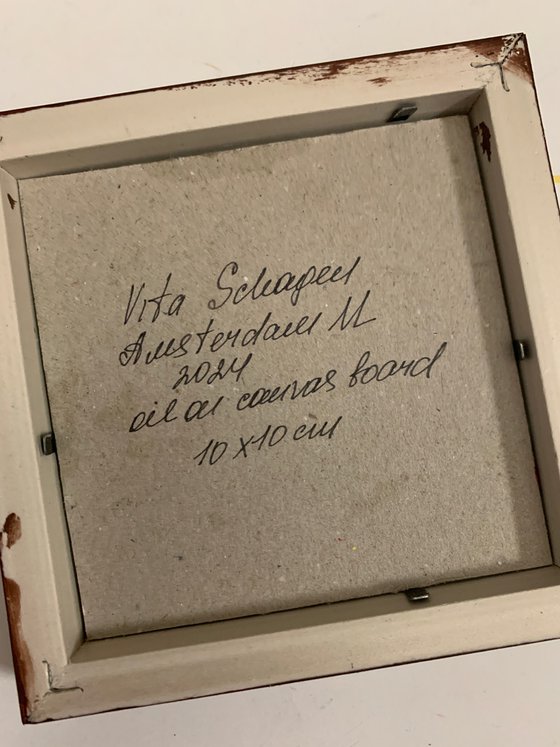 Vita Schagen
Amsterdam II
2024
oil on canvas board
10x10 cm